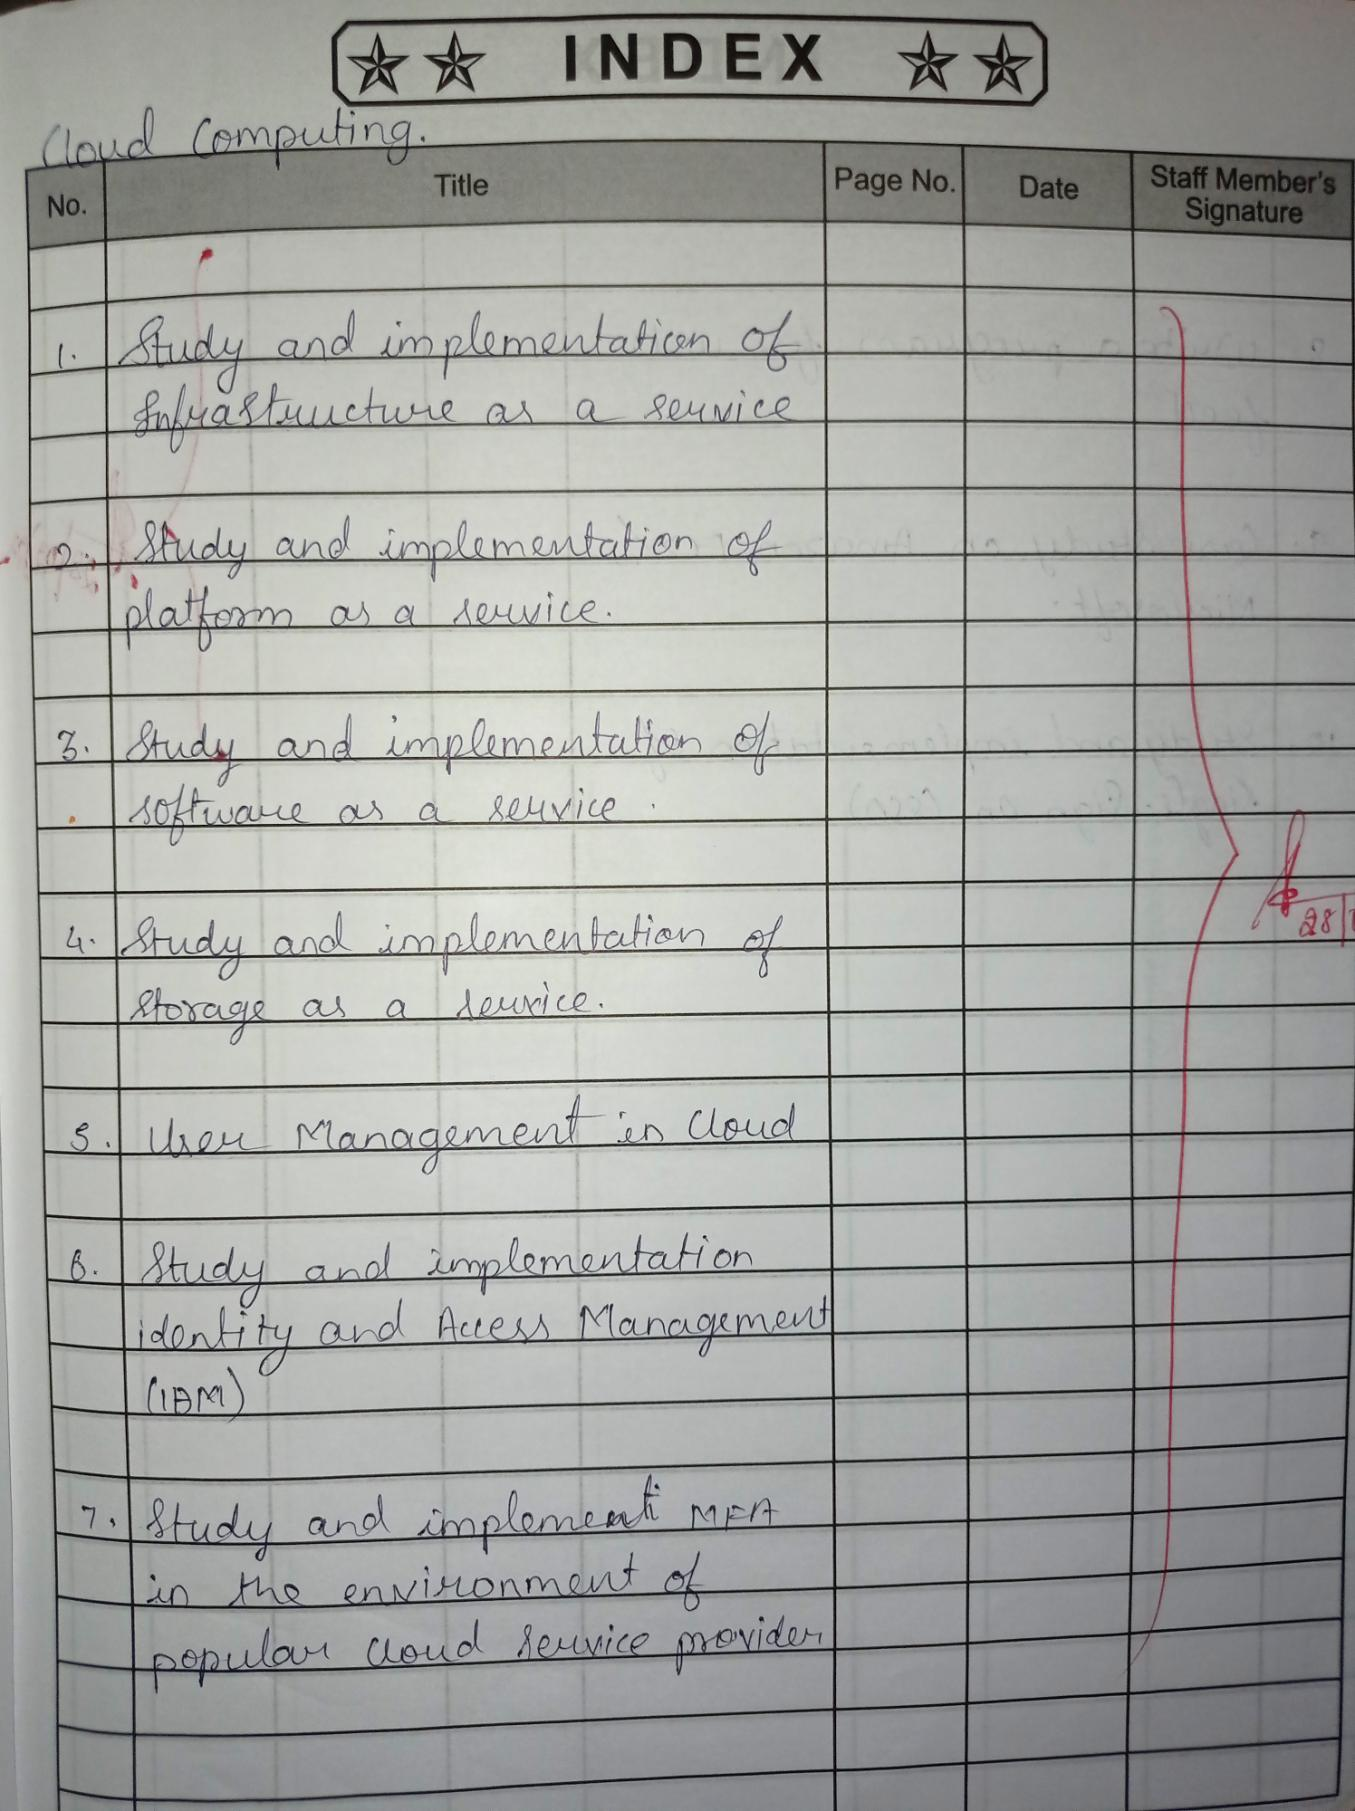 INDEX
Cloud Computing.
No. Title Page No. Date Staff Member's Signature
1. Study and implementation of
Infrastructure as a service
2. Study and implementation of
platform as a service.
3. Study and implementation of
software as a service.
4. Study and implementation of
Storage as a service.
5. User Management in Cloud
6. Study and implementation
identity and Access Management
7. Study and implement MFA
in the environment of
popular cloud service provider
28